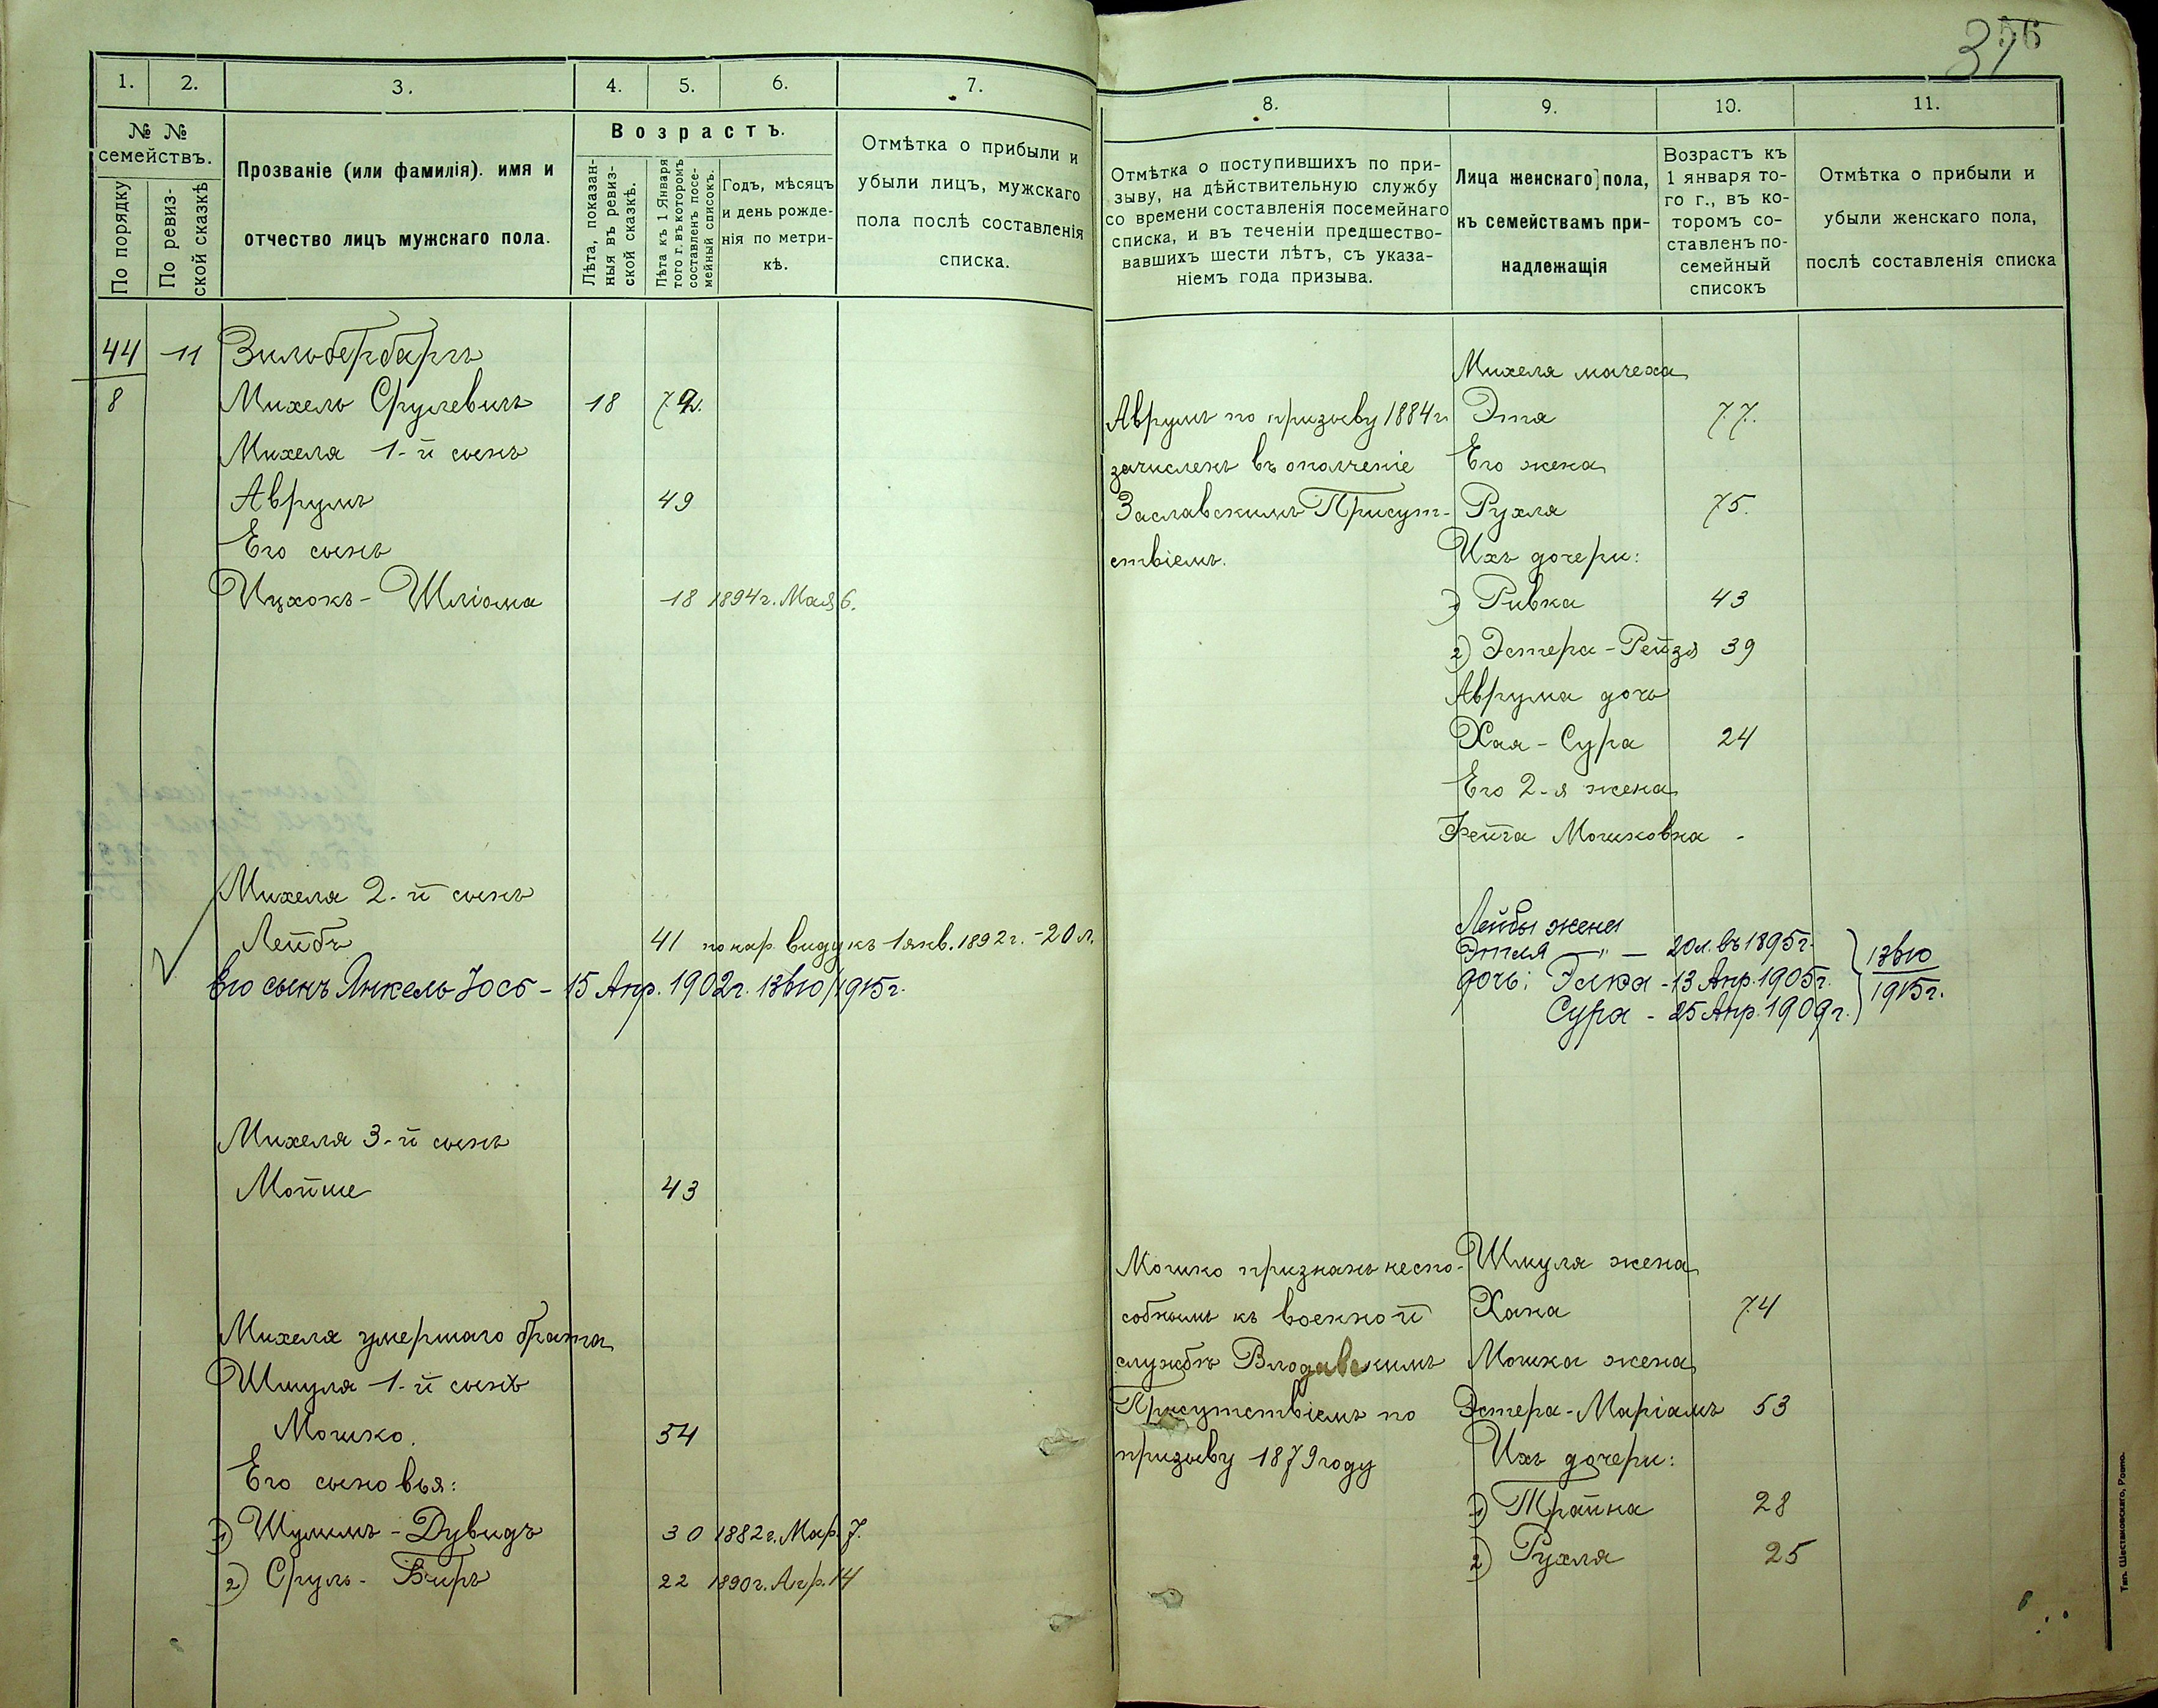 1.
2.
3.
4.
5.
6.
7.
№ №
семействъ.
По порядку
По ревиз-
ской сказкѣ
Прозваніе (или фамилія). имя и
отчество лицъ мужскаго пола.
Возрастъ.
Лѣта, показан-
ныя въ ревиз-
ской сказкѣ.
Лѣта къ 1 Января
того г. въ которомъ
составленъ посе-
мейный списокъ.
Годъ, мѣсяцъ
и день рожде-
нія по метри-
кѣ.
Отмѣтка о прибыли и
убыли лицъ, мужскаго
пола послѣ составленія
списка.
44 11 Зильбербергъ
8 Михель Срулевичъ 18 72.
Михеля 1-й сынъ
Аврумъ 49
Его сынъ
Ицхокъ-Шліома 18 1894 г. Мая 6.
Михеля 2-й сынъ
Лейбъ 41 по нар. виду къ 1 янв. 1892 г. - 20 л.
Его сынъ Янкель Іосъ - 15 Апр. 1902 г. 1915 г.
Михеля 3-й сынъ
Мойше 43
Михеля умершаго брата
Шмуля 1-й сынъ
Мошко. 54
Его сыновья:
1) Шулимъ-Дувидъ 30 1882 г. Мар. 7.
2) Сруль-Беръ 22 1890 г. Апр. 14
37
56
8.
9.
10.
11.
Отмѣтка о поступившихъ по при-
зыву, на дѣйствительную службу
со времени составленія посемейнаго
списка, и въ теченіи предшество-
вавшихъ шести лѣтъ, съ указа-
ніемъ года призыва.
Лица женскаго пола,
къ семействамъ при-
надлежащія
Возрастъ къ
1 января то-
го г., въ ко-
торомъ со-
ставленъ по-
семейный
списокъ
Отмѣтка о прибыли и
убыли женскаго пола,
послѣ составленія списка
Аврумъ по призыву 1884 г.
зачисленъ въ ополченіе
Заславскимъ Присут-
ствіемъ.
Михеля мачеха
Этя 77.
Его жена
Рухля 75.
Ихъ дочери:
1) Ривка 43
2) Эстера-Рейзя 39
Аврума дочь
Хая-Сура 24
Его 2-я жена
Фейга Мошковна -
Лейбы жена
Этля - " - 20 л. въ 1895 г.
дочь: Элка - 13 Апр. 1905 г.
Сура - 25 Апр. 1909 г.
1915 г.
Мошко признанъ неспо-
собнымъ къ военной
службѣ Влодавскимъ
Присутствіемъ по
призыву 1879 году
Шмуля жена
Хана 74
Мошка жена
Эстера-Маріамъ 53
Ихъ дочери:
1) Трайна 28
2) Рухля 25
Тип. Шестаковскаго, Ровно.